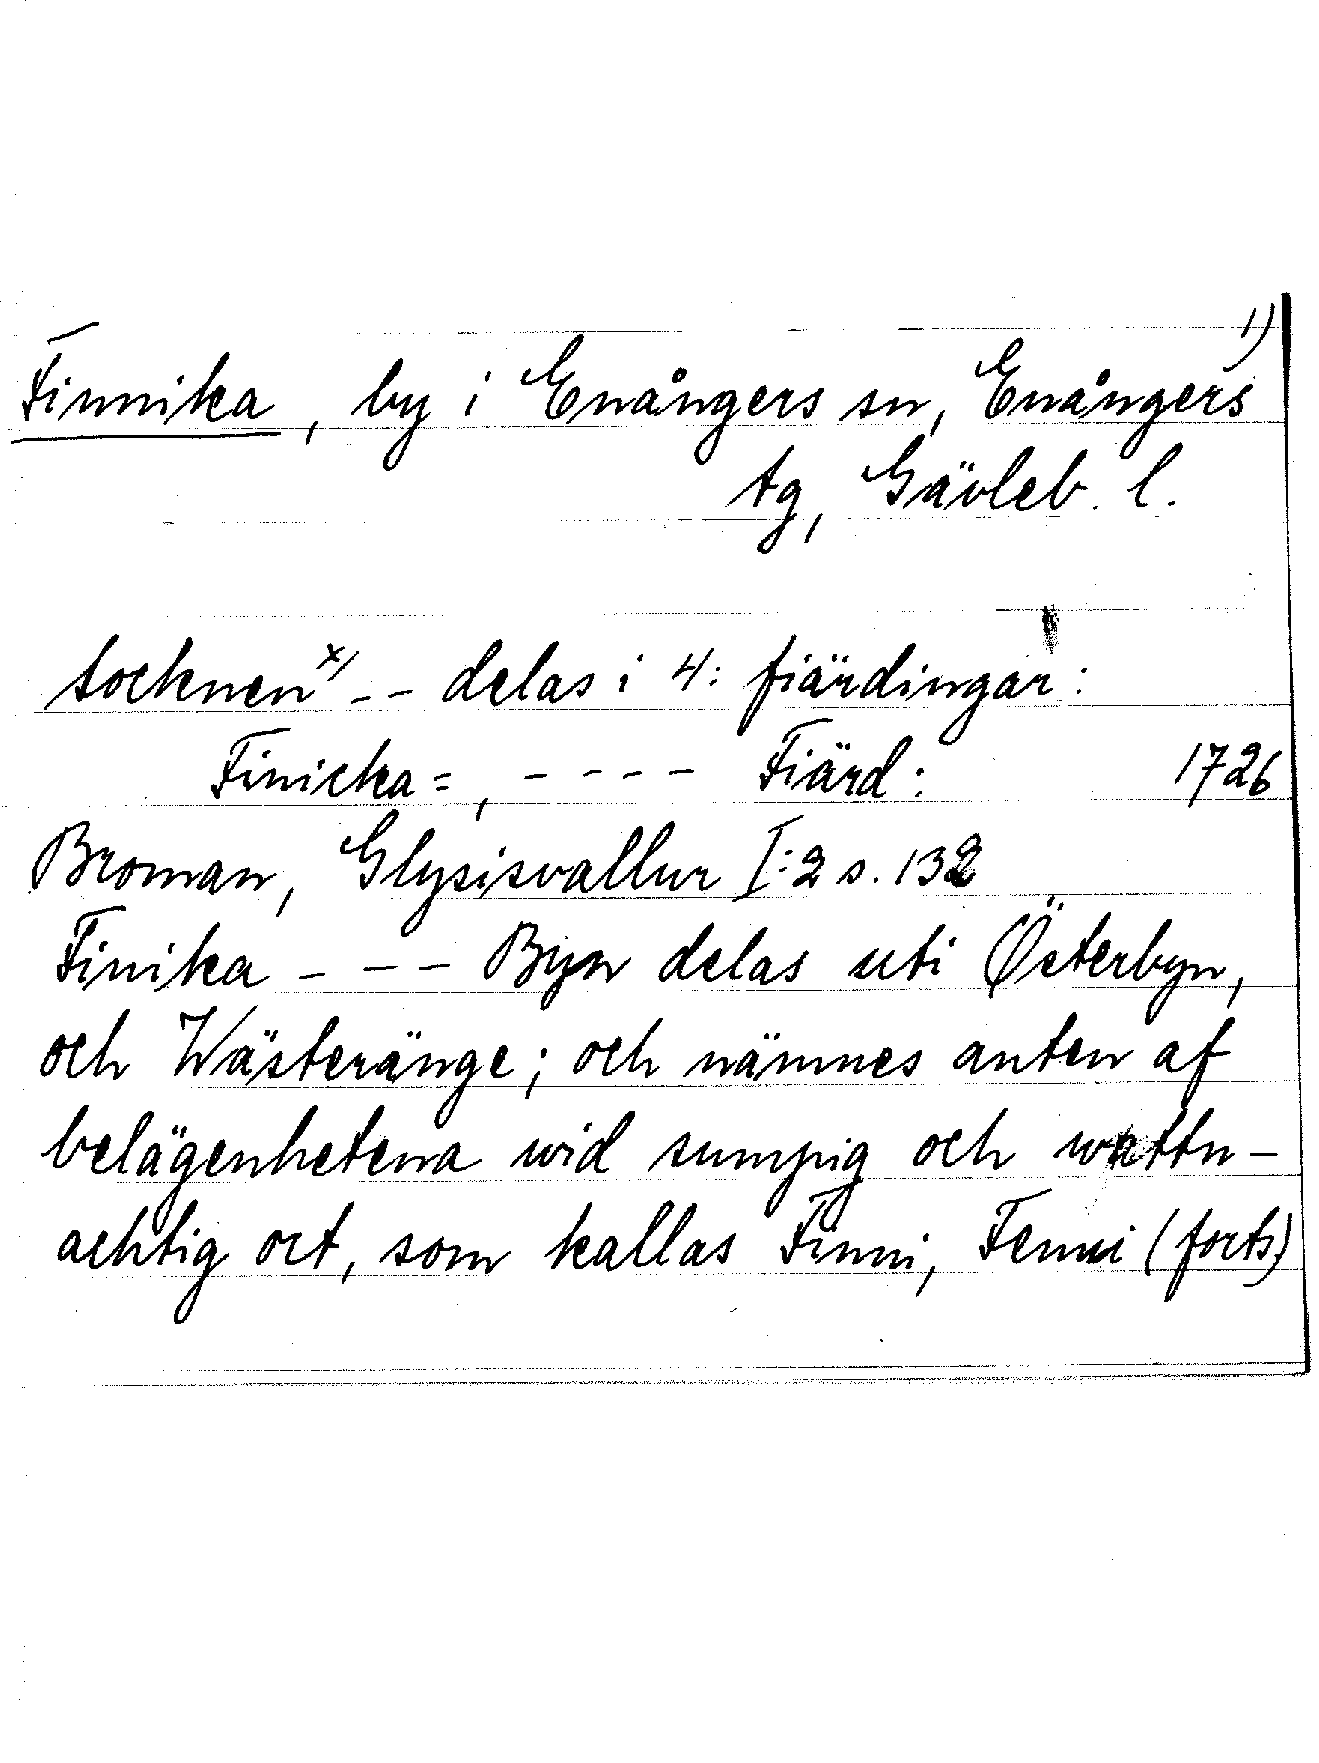 1)
Finnika, by i Enångers sn, Enångers
tg, Gävleb. l.
socknen x) -- delas i 4: fiärdingar:
Finicka=, ---- Fiärd: 1726
Broman, Glysisvallur I:2 s. 132
Finika --- Byn delas uti Österbyn,
och Wästeränge; och nämnes anten af
belägenhetena wid sumpig och wattn-
achtig ort, som kallas Finni, Fenni (forts)